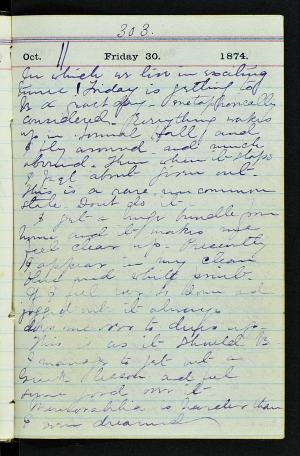 303.
Oct. 11 Friday 30. 1874.
In which we live in exciting
times! Friday is getting to
be a great day - metaphorically
considered. Everything wakes
up in Normal Hall, and
I fly around and much
abound. Then when it stops
I feel about worn out.
This is a rare, uncommon
state. Don't do it.
I get a huge bundle from
home and it makes me
feel clear up. Presently
I appear in my clean
blue and white
If I feel ever so down and
jogged out it always
does me so to dress up.
This is as it should be.
I manage to get out a
Greek lesson and feel
some good over it.
Memorabilia is harder than
I ever dreamed